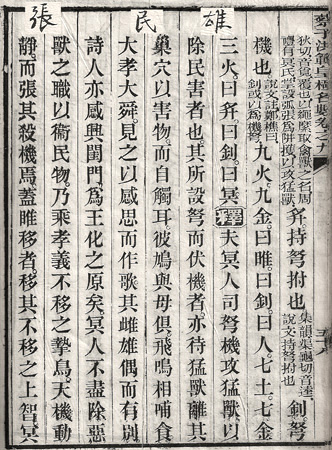 張民雄
蔡子洪範皇極名數卷之九
狄切音覓覆也以繩縻取禽獸之名周
禮有冥氏掌設弧張爲阱擭以攻猛獸
弅持弩拊也
集韻集龜切音逵
說文持弩拊也
釗弩
機也
說文註鄭樵曰
釗或以爲機弩
九火九金。曰睢。曰釗。曰人。七土。七金
三火。曰弅。曰釗。曰冥。釋夫冥人司弩機攻猛獸以
除民害者也。其所設弩而伏機者。亦待猛獸離其
巢穴以害物。而自觸耳。彼鳩與母俱。飛鳴相哺食
大孝大舜。見之以感思而作歌。其雌雄偶而有別
詩人亦感興閨門。爲王化之原矣。冥人不盡除惡
獸之職以衛民物。乃乘孝義不移之摯鳥。天機動
靜。而張其殺機焉。蓋睢移者。移其不移之上智。冥